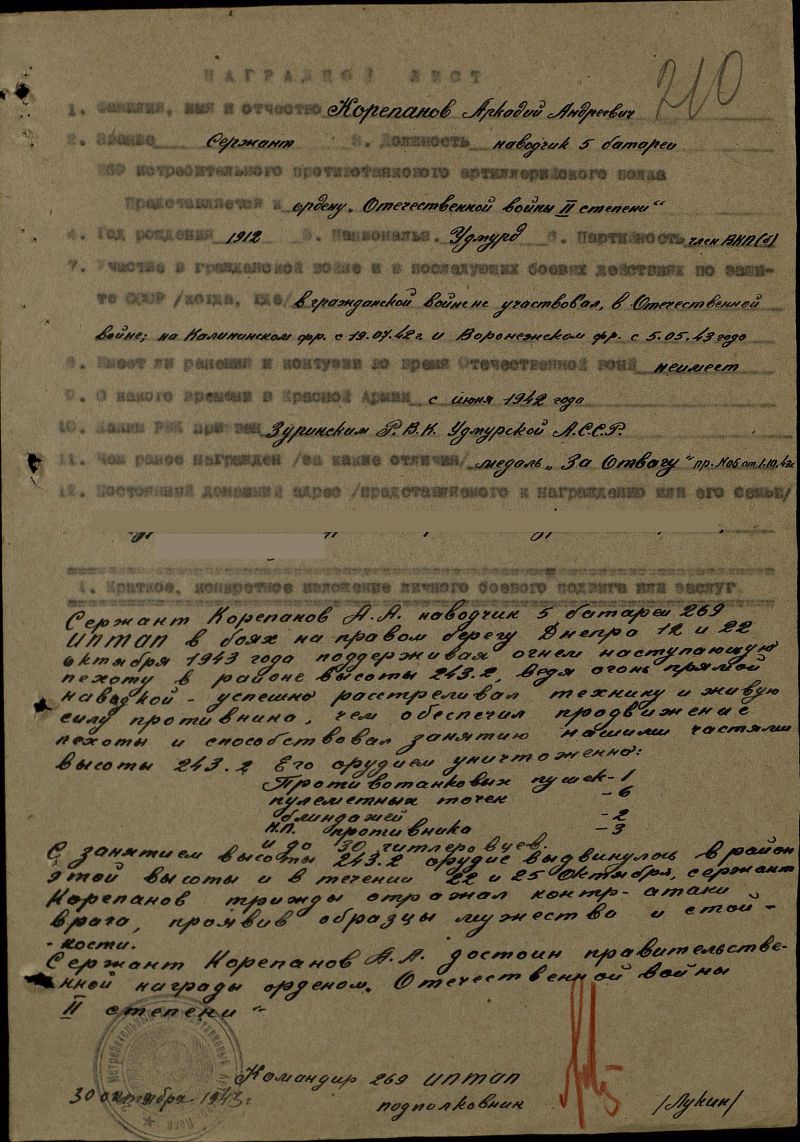 210
НАГРАДНОЙ ЛИСТ
1. Фамилия, имя и отчество Корепанов Аркадий Андреевич
2. Звание Сержант 3. Должность наводчик 5 батареи
269 истребительного противотанкового артиллерийского полка
Представляется к ордену „Отечественной войны II степени“
4. Год рождения 1912 5. Национальн. Удмурд 6. Партийность член ВКП(б)
7. Участие в гражданской войне и в последующих боевых действиях по защи-
те СССР /когда, где/ в гражданской войне не участвовал, в Отечественной
войне; на Калининском фр. с 19.07.42 г и Воронежском фр. с 5.05.43 года
8. Имеет ли ранения и контузии во время Отечественной войн неимеет
9. С какого времени в Красной Армии с июня 1942 года
10. Каким РВК призван Зуринским Р.В.К. Удмурской А.С.С.Р.
11. Чем ранее награжден /за какие отличия/ медаль „За Отвагу“ пр. №06 от 1.10.43г
12. Постоянный домашний адрес /представляемого к награждению или его семьи/
1. Краткое, конкретное изложение личного боевого подвига или заслуг.
Сержант Корепанов А.А. наводчик 5 батареи 269
ИПТАП в боях на правом берегу Днепра 12 и 22
октября 1943 года поддерживая огнем наступающую
пехоту в районе высоты 243.2, Ведя огонь прямой
наводкой - успешно расстреливал технику и живую
силу противника, чем обеспечил продвижение
пехоты и способствовал занятию нашими частями
высоты 243.2 Его орудием уничтоженно:
Противотанковых пушек - 1
пулеметных точек - 6
блиндажей - 2
Н.П. противника - 3
и до 30 гитлеровцев.
С занятием высоты 243.2 орудие выдвинулось в район
этой высоты и в течении 22 и 25 Октября, сержант
Корепанов трижды отражал контр-атаки
врага, проявив образцы мужества и стой-
-кости.
Сержант Корепанов А.А. достоин правительстве-
нной награды орденом „Отечественной войны
II степени“
Командир 269 ИПТАП
30 октября 1943г подполковник /Лукин/